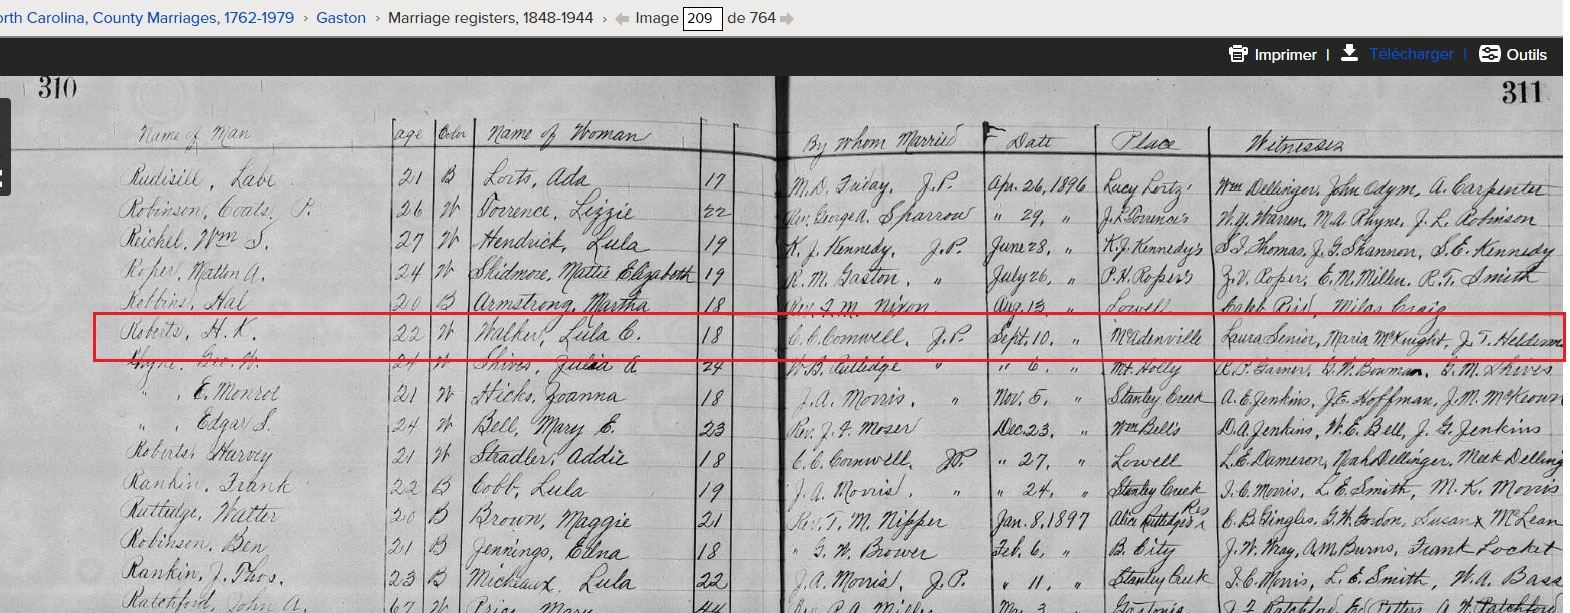 orth Carolina, County Marriages, 1762-1979 › Gaston › Marriage registers, 1848-1944 › Image 209 de 764
Imprimer | Télécharger | Outils
310 311
Name of Man age Color Name of Woman By Whom Married Date Place Witnesses
Rudisill, Labe 21 B Lorts, Ada 17 M.D. Friday, J.P. Apr. 26, 1896 Lucy Lortz' Wm Dellinger, John Odym, A. Carpenter
Robinson, Coats, P. 26 W Torrence, Lizzie 22 Rev. George A. Sparrow " 29, " J.L. Torrence's W.Y. Warren, M.A. Rhyne, J.L. Robinson
Reichel, Wm S. 27 W Hendrick, Lula 19 K.J. Kennedy, J.P. June 28, " K.J. Kennedy's S.I. Thomas, J.G. Shannon, S.E. Kennedy
Roper, Matton A. 24 W Skidmore, Mattie Elizabeth 19 R.M. Gaston, " July 26, " P.H. Roper's Z.V. Roper, E.M. Millen, R.T. Smith
Robbins, Hal 20 B Armstrong, Martha 18 Rev. F.M. Nixon Aug. 13, " Lowell Caleb Reid, Milas Craig
Roberts, H.K. 22 W Walker, Lula C. 18 C.C. Cornwell, J.P. Sept. 10, " McAdenville Laura Senior, Maria McKnight, J.T.
Rhyne, Geo. W. 24 W Shives, Julia A 24 W.B. Rutledge " " 6, " Mt. Holly G.W. Bowman, G.M. Shives
" , E. Monroe 21 W Hicks, Joanna 18 J.A. Morris, " Nov. 5, " Stanley Creek A.E. Jenkins, J.E. Hoffman, J.M. McKeown
" , Edgar S. 24 W Bell, Mary E. 23 Rev. J.F. Moser Dec. 23, " Wm Bell's D.A. Jenkins, W.E. Bell, J.G. Jenkins
Roberts, Harvey 21 W Stradler, Addie 18 C.C. Cornwell, J.P. " 27, " Lowell L.E. Dameron, Noah Dellinger, Meek Delling
Rankin, Frank 22 B Cobb, Lula 19 J.A. Morris, " " 24, " Stanley Creek I.C. Morris, L.E. Smith, M.K. Morris
Rutledge, Walter 20 B Brown, Maggie 21 Rev. T.M. Nipper Jan. 8, 1897 Alice Rutledge's Res C.B. Gingles, G.W. Gordon, Susan x McLean
Robinson, Ben 21 B Jennings, Edna 18 " G.W. Brower Feb. 6, " B. City J.W. Wray, A.M. Burns, Frank Locket
Rankin, J. Thos. 23 B Micheaux, Lula 22 J.A. Morris, J.P. " 11, " Stanley Creek I.C. Morris, L.E. Smith, W.A. Bass
Ratchford, John A. 67 W Price, Mary 44 Rev. P.A. Miller Mar. 3 Gastonia